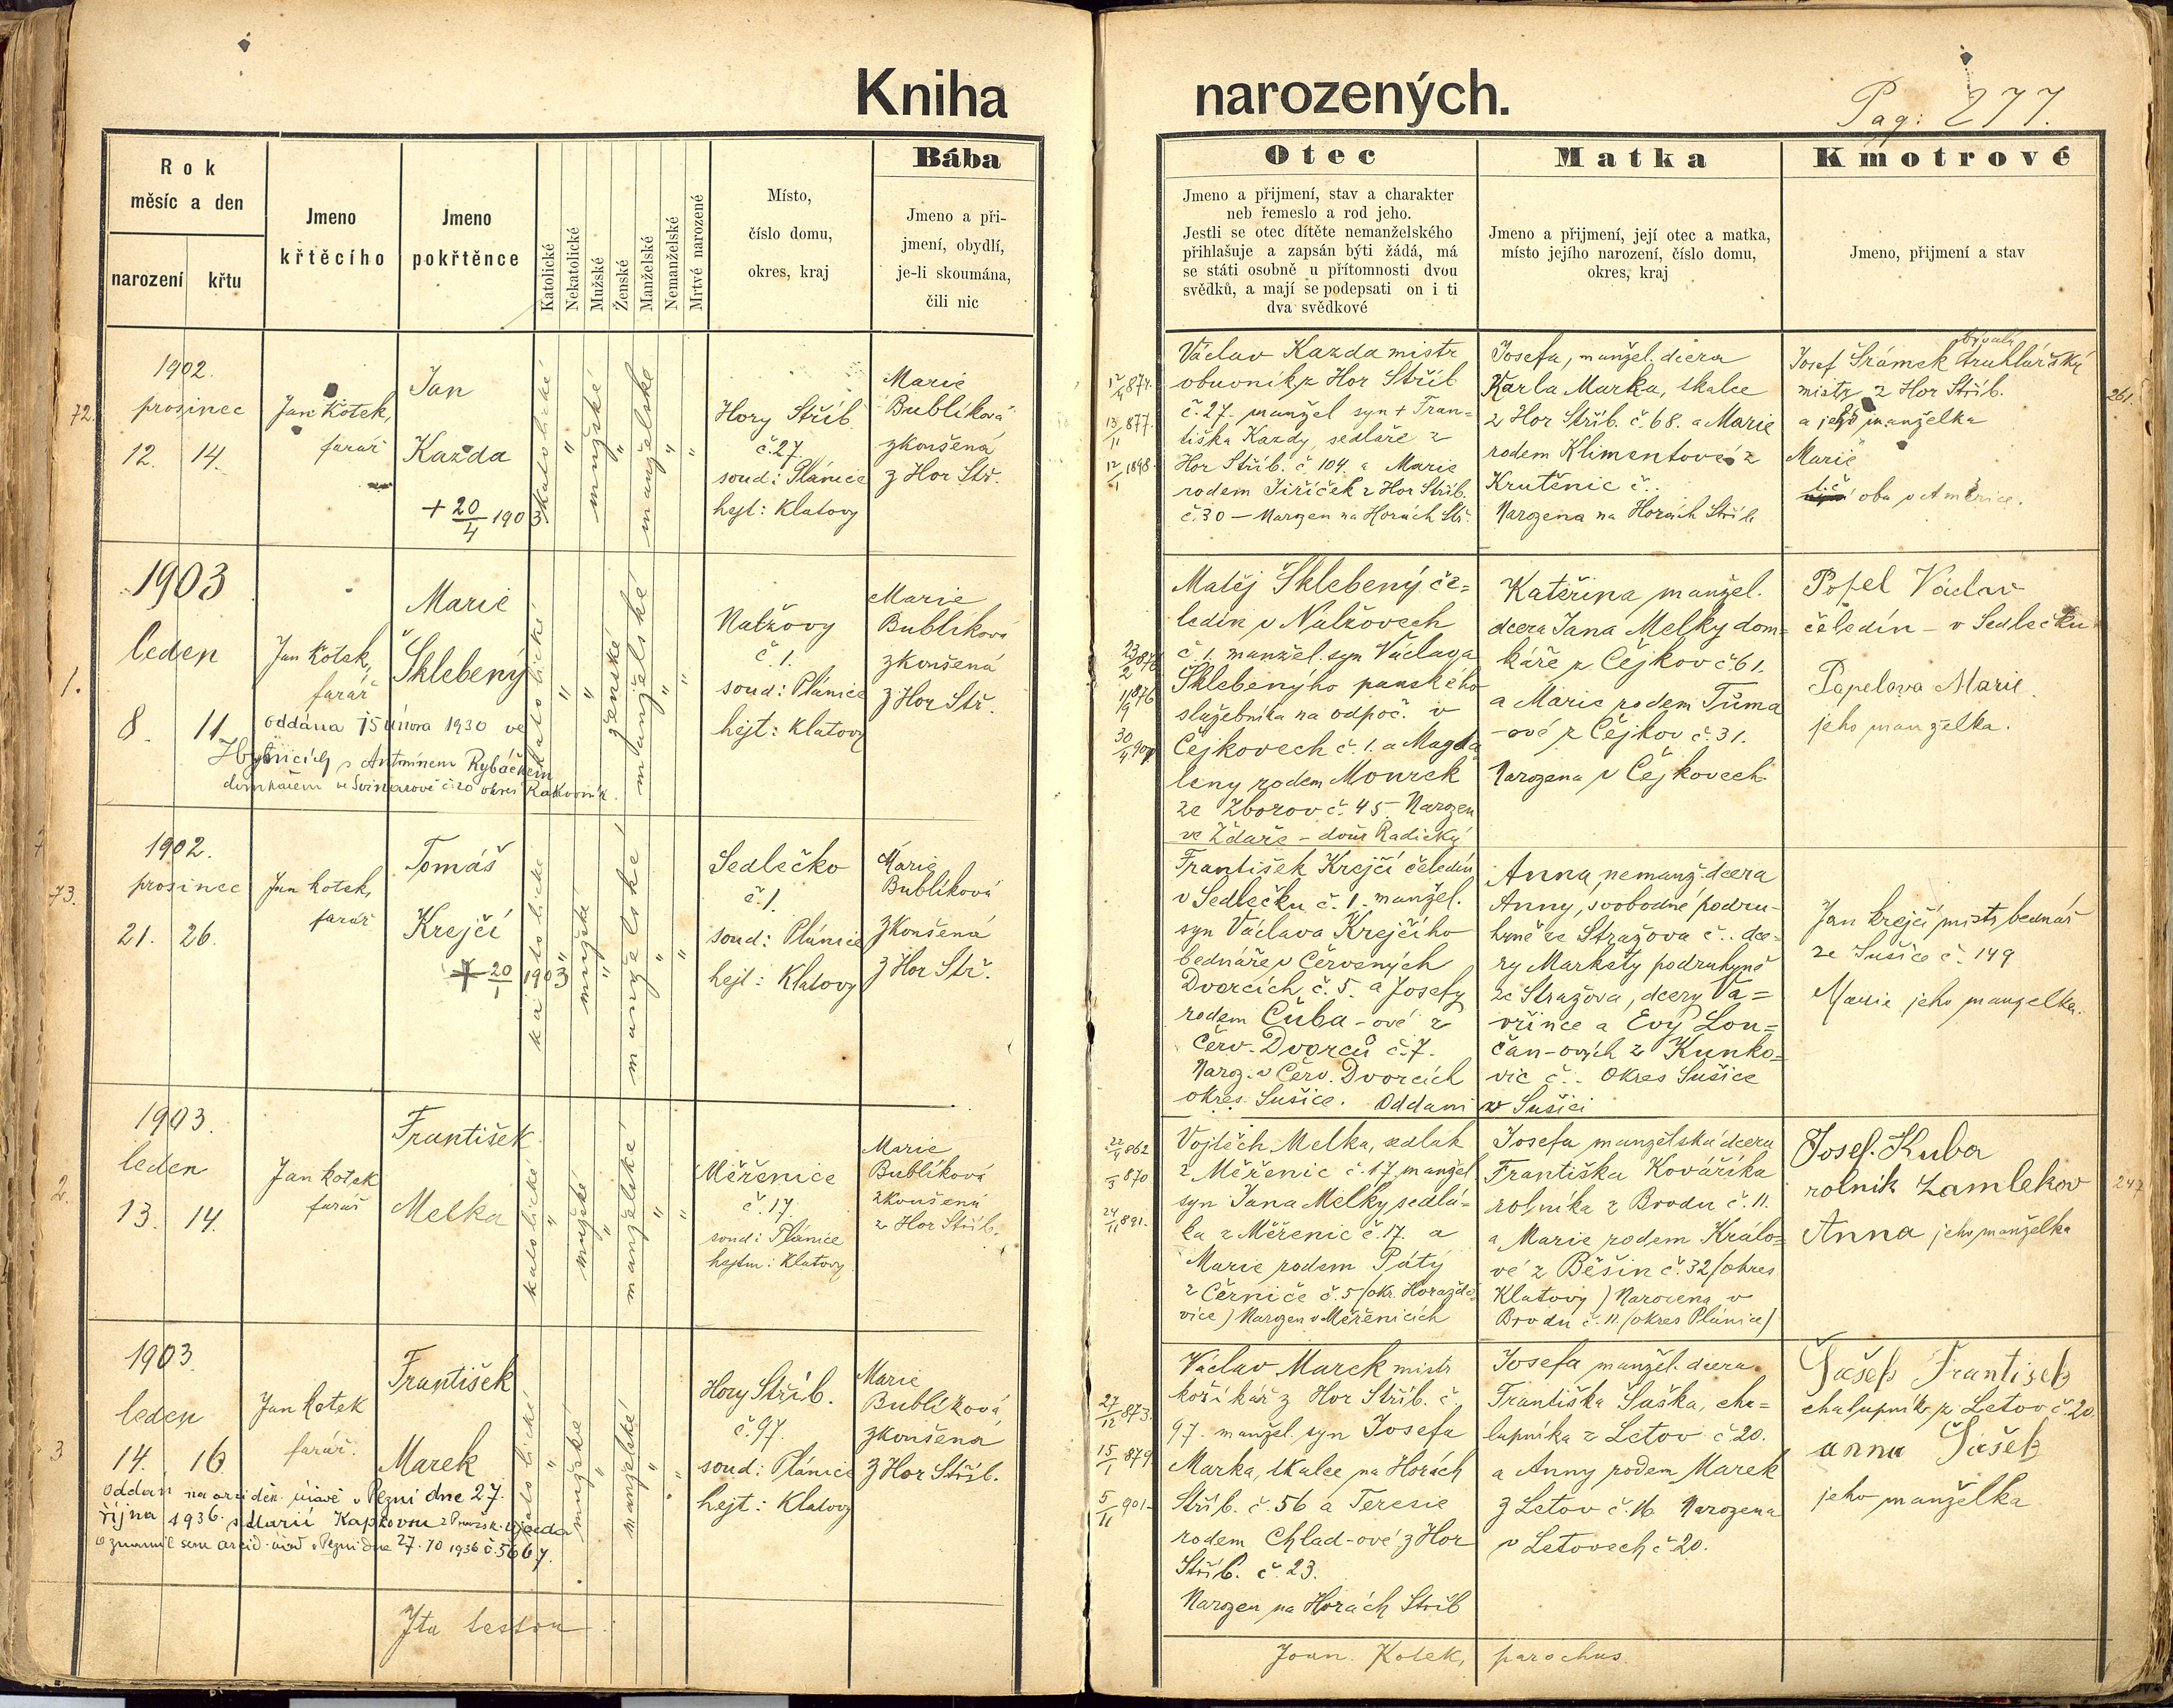 Kniha narozených.
Pag: 277.
Rok
měsíc a den
narození
křtu
Jmeno
křtěcího
Jmeno
pokřtěnce
Katolické
Nekatolické
Mužské
Ženské
Manželské
Nemanželské
Mrtvé narozené
Místo,
číslo domu,
okres, kraj
Bába
Jmeno a při-
jmení, obydlí,
je-li skoumána,
čili nic
Otec
Jmeno a přijmení, stav a charakter
neb řemeslo a rod jeho.
Jestli se otec dítěte nemanželského
přihlašuje a zapsán býti žádá, má
se státi osobně u přítomnosti dvou
svědků, a mají se podepsati on i ti
dva svědkové
Matka
Jmeno a přijmení, její otec a matka,
místo jejího narození, číslo domu,
okres, kraj
Kmotrové
Jmeno, přijmení a stav
72.
1902.
prosinec
12. 14.
Jan Kotek,
farář
Jan
Kazda
+ 20/4 1903
katolické
"
mužské
"
manželské
"
"
Hory Stříb.
č. 27.
soud: Plánice
hejt: Klatovy
Marie
Bublíková
zkoušená
z Hor Stř.
12/4 874.
13/11 877.
12/1 1898.
Václav Kazda mistr
obuvník z Hor Stříb
č. 27. manžel syn + Fran=
tiška Kazdy, sedláře z
Hor Stříb. č. 104. a Marie
rodem Jiříček z Hor Stříb.
č. 30 — Narozen na Horách Stř.
Josefa, manžel. dcera
Karla Marka, skalce
z Hor Stříb. č. 68. a Marie
rodem Klimentové z
Krutěnic č..
Narozena na Horách Stříb
Josef Šrámek bývalý truhlářský
mistr z Hor Stříb.
a jeho manželka
Marie
t.č. oba v Americe.
261.
1.
1903
leden
8. 11.
Jan Kotek,
farář
Marie
Šklebený
oddána 15 února 1930 ve
Hybnicích s Antonínem Rybáčkem
domkářem ve Svinařově č. 20 okres Rakovník.
katolické
"
"
ženské
manželské
"
"
Nalžovy
č. 1.
soud: Plánice
hejt: Klatovy
Marie
Bublíková
zkoušená
z Hor Stř.
23/2 876
11/9 876
30/4 901
Matěj Šklebený če=
ledín v Nalžovech
č. 1. manžel. syn Václava
Šklebenýho panského
služebníka na odpoč. v
Čejkovech č. 1. a Magda
leny rodem Mourek
ze Zborov č. 45 Narozen
ve Ždaře – dvůr Radický
Kateřina manžel.
dcera Jana Melky dom=
káře z Čejkov č. 61.
a Marie rodem Tůma
-ové z Čejkov č. 31.
Narozena v Čejkovech
Popel Václav
čeledín – v Sedlečku
Popelova Marie.
jeho manželka.
73.
1902.
prosinec
21. 26.
Jan Kotek,
farář
Tomáš
Krejčí
+ 20/1 1903
katolické
"
mužské
"
manželské
"
"
Sedlečko
č. 1.
soud: Plánice
hejt: Klatovy
Marie
Bublíková
zkoušená
z Hor Stř.
František Krejčí čeledín
v Sedlečku č. 1. manžel.
syn Václava Krejčího
bednáře v Červených
Dvorcích č. 5. a Josefy
rodem Čuba-ové z
Červ. Dvorců č. 7.
Naroz. v Červ. Dvorcích
okres Sušice. Oddani v Sušici
Anna, nemanž. dcera
Anny, svobodné podru-
hyně ze Stražova č.. dce-
ry Markety podruhyně
ze Stražova, dcery Va=
vřince a Evy Lou=
čan-ových z Kunko=
vic č.. Okres Sušice
Jan Krejčí mistr bednář
ze Sušice č. 149
Marie jeho manželka.
2.
1903.
leden
13. 14.
Jan Kotek
farář
František
Melka
katolické
"
mužské
"
manželské
"
"
Měřenice
č. 17.
soud: Plánice
hejtm: Klatovy
Marie
Bublíková
zkoušená
z Hor Stříb.
22/4 862
/3 870
24/11 891.
Vojtěch Melka, sedlák
z Měřenic č. 17 manžel
syn Jana Melky sedlá-
ka z Měřenic č. 17. a
Marie rodem Pátý
z Černiče č. 5 (okr. Horažďo
vice) Narozen v Měřenicích
Josefa manželská dcera
Františka Kováříka
rolníka z Brodu č. 11.
a Marie rodem Králo=
vé z Běšin č. 32 (okres
Klatovy) Narozena v
Brodu č. 11. (okres Plánice)
Josef Kuba
rolník Zamlekov
Anna jeho manželka
247
3
1903.
leden
14. 16
Jan Kotek
farář.
František
Marek
oddán na arciděk. úřadě v Plzni dne 27.
října 1936. s Marií Kapkovou
oznámil sem arcid. úřad v Plzni dne 27.10 1936 č. 5667.
katolické
"
mužské
"
manželské
"
"
Hory Stříb.
č. 97.
soud: Plánice
hejt: Klatovy
Marie
Bublíková
zkoušená
z Hor Stříb.
27/12 873.
15/1 879.
5/11 901-
Václav Marek mistr
košíkář z Hor Stříb. č
97. manžel. syn Josefa
Marka, skalce na Horách
Stříb. č. 56 a Teresie
rodem Chlad-ové z Hor
Stříb. č. 23.
Narozen na Horách Stříb
Josefa manžel. dcera
Františka Šaška, cha=
lupníka z Letov č 20.
a Anny rodem Marek
z Letov č. 16 Narozena
v Letovech č 20.
Šašek František
chalupník z Letov č. 20.
anna Šašek
jeho manželka
Ita testor:
Joan. Kotek, parochus